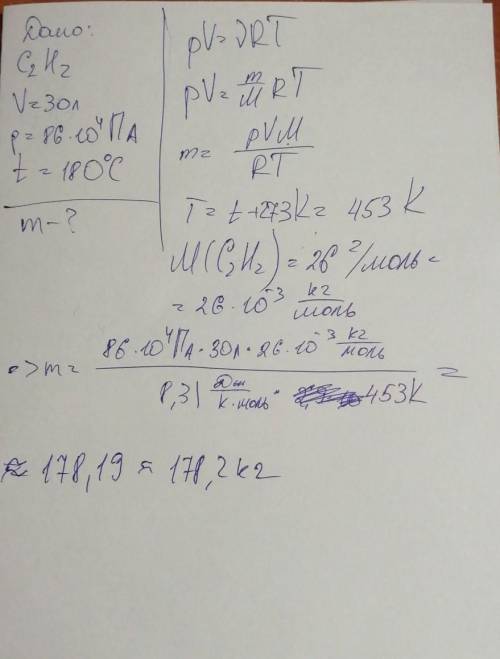 Дано:
C₂H₂
V=30л
p=86·10⁴ПА
t=180°C
m-?
pV=νRT
pV=m/M RT
m= pVM/RT
T=t+273K=453K
M(C₂H₂)=26 г/моль=
=26·10⁻³ кг/моль
=>m= 86·10⁴ПА·30л·26·10⁻³ кг/моль / 8,31 Дж/К·моль · 453K =
≈178,19≈178,2кг